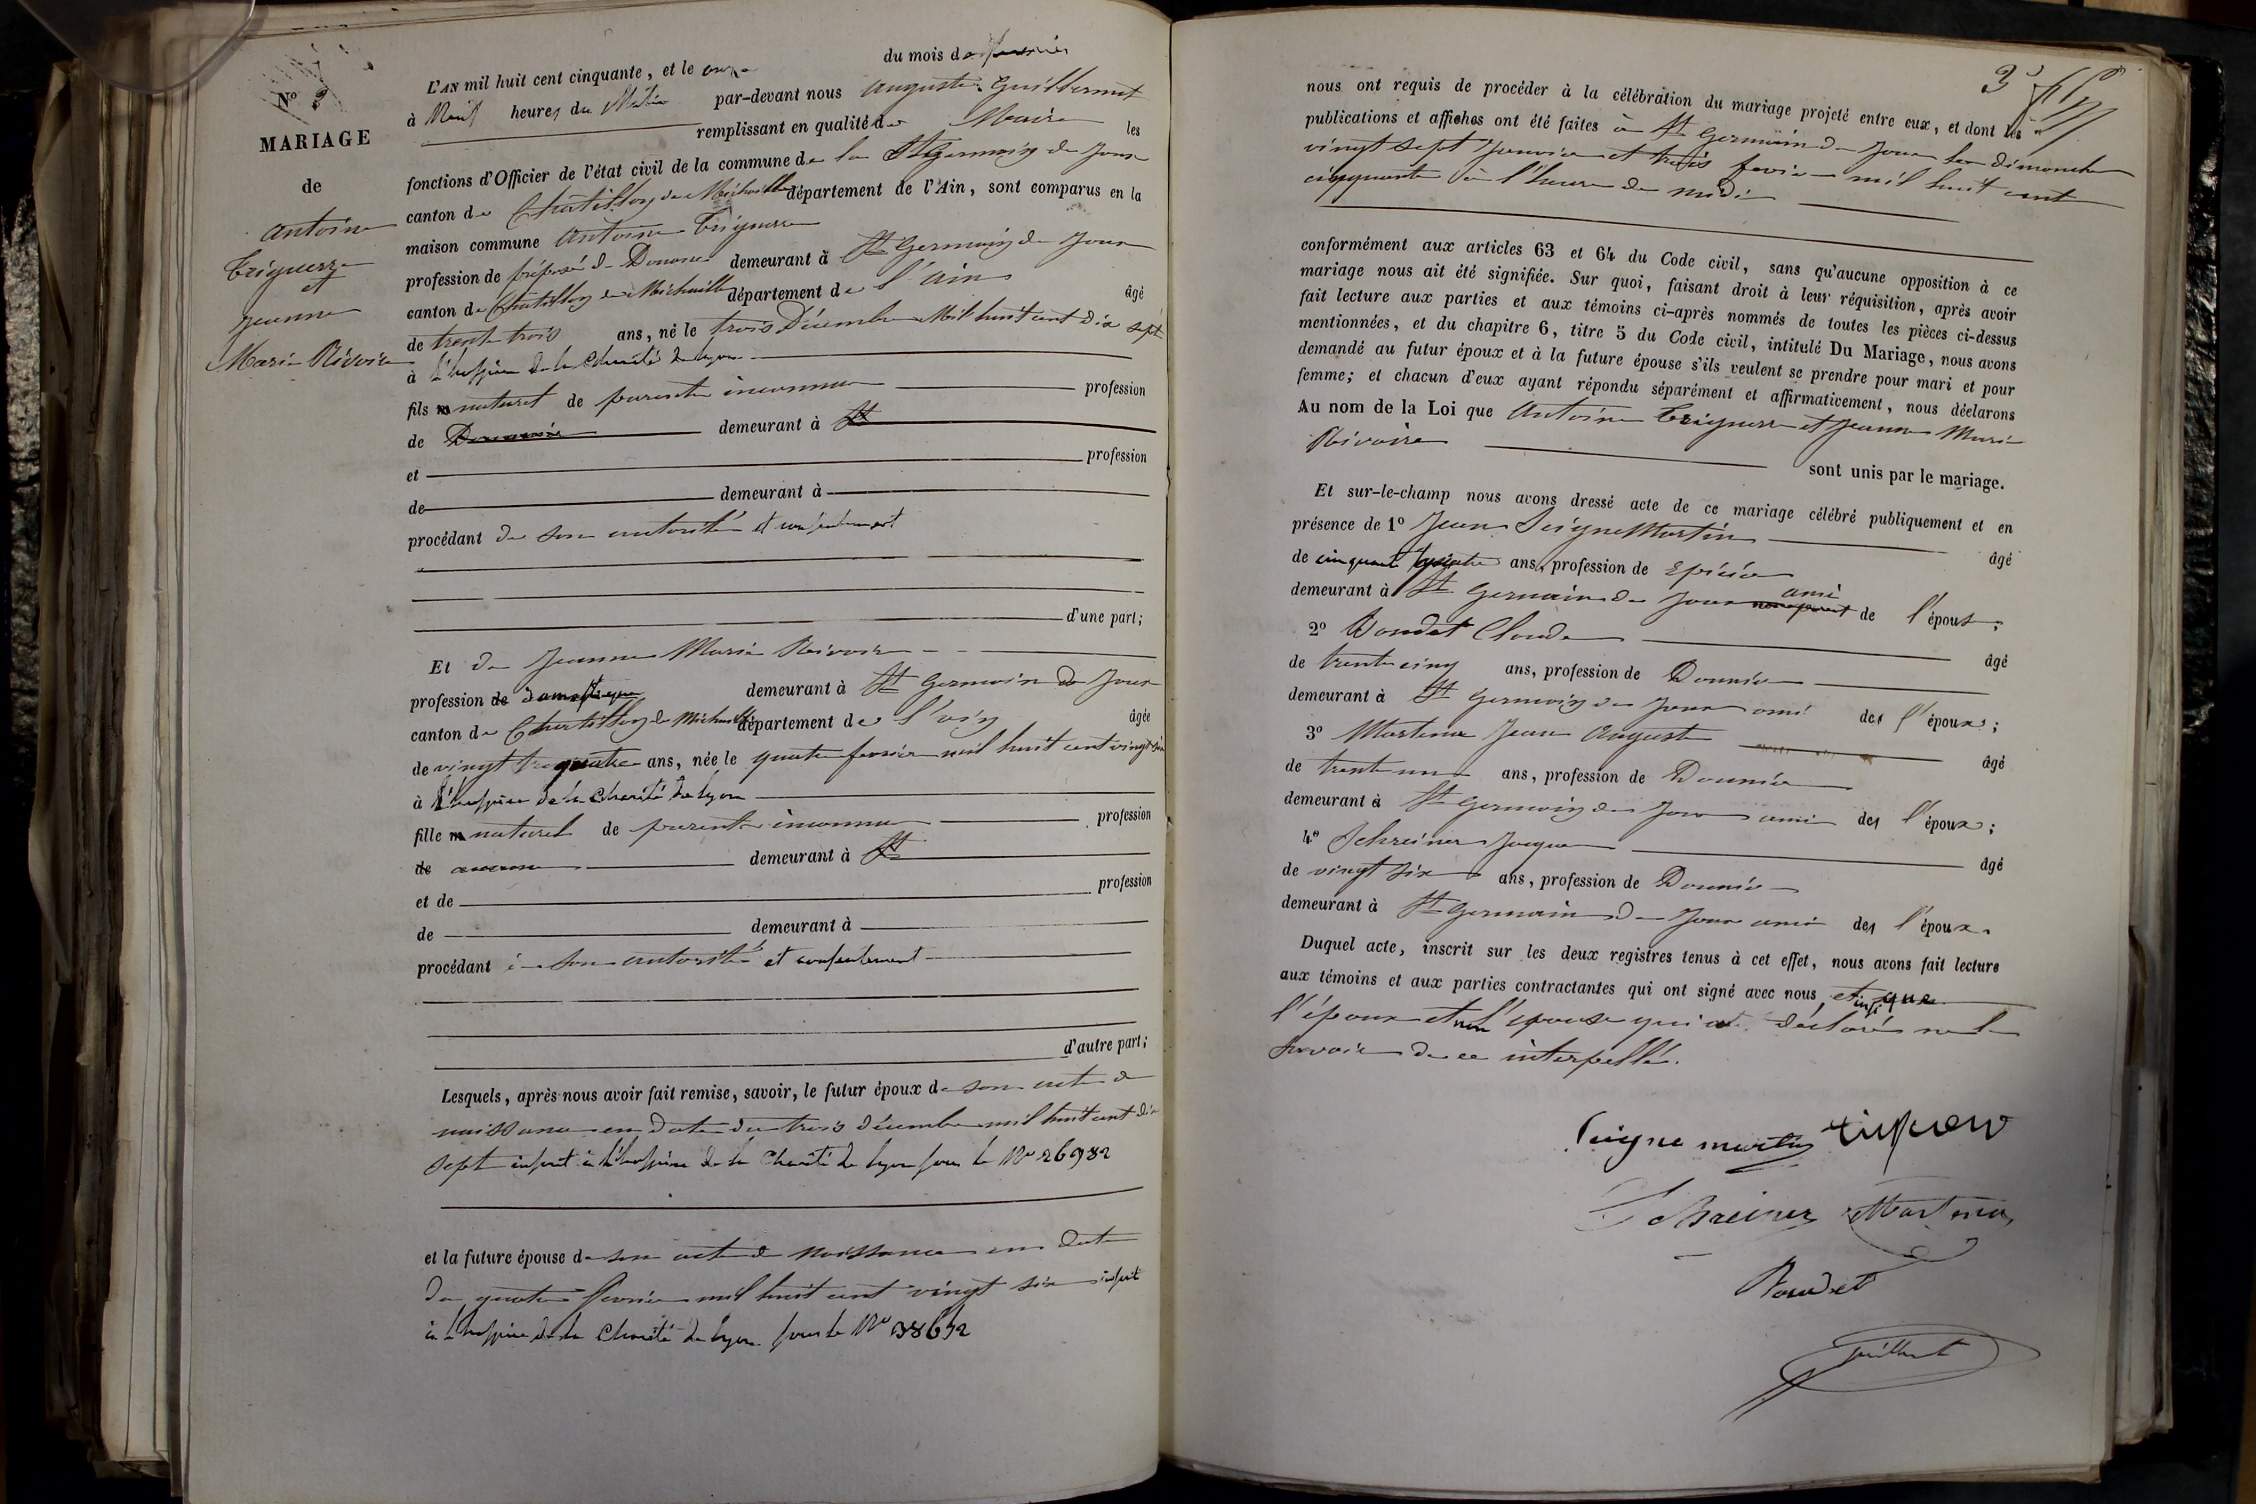 N° 3
MARIAGE
de
Antoine
Triguerre
et
Jeanne
Marie Rivoire
L'AN mil huit cent cinquante, et le onze du mois de février
à Neuf heures du Matin par-devant nous Auguste Guillermet
remplissant en qualité de Maire les
fonctions d'Officier de l'état civil de la commune de la St Germain de Joux
canton de Chatillon de Michaille département de l'Ain, sont comparus en la
maison commune Antoine Triguerre
profession de préposé de Douanes demeurant à St Germain de Joux
canton de Chatillon de Michaille département de l'ain âgé
de trente trois ans, né le trois Décembre Mil huit cent dix sept
à l'hospice de la Charité de Lyon
fils naturel de parents inconnus profession
de demeurant à St
et profession
de demeurant à
procédant de son autorité et consentement
d'une part;
Et de Jeanne Marie Rivoire
profession de domestique demeurant à St Germain de Joux
canton de Chatillon de Michaille département de l'ain âgée
de vingt quatre ans, née le quatre fevrier mil huit cent vingt six
à l'hospice de la Charité de Lyon
fille naturel de parents inconnus profession
de aucune demeurant à St
et de profession
de demeurant à
procédant de son autorité et consentement
d'autre part;
Lesquels, après nous avoir fait remise, savoir, le futur époux de son acte de
naissance en date du trois décembre mil huit cent dix
sept inscrit à l'hospice de la Charité de Lyon sous le N° 26982
et la future épouse de son acte de Naissance en date
du quatre fevrier mil huit cent vingt six inscrit
à l'hospice de la Charité de Lyon sous le N° 38652
3
nous ont requis de procéder à la célébration du mariage projeté entre eux, et dont les
publications et affiches ont été faites à St Germain de Joux les dimanche
vingt sept Janvier et trois fevrier mil huit cent
cinquante à l'heure de midi
conformément aux articles 63 et 64 du Code civil, sans qu'aucune opposition à ce
mariage nous ait été signifiée. Sur quoi, faisant droit à leur réquisition, après avoir
fait lecture aux parties et aux témoins ci-après nommés de toutes les pièces ci-dessus
mentionnées, et du chapitre 6, titre 5 du Code civil, intitulé Du Mariage, nous avons
demandé au futur époux et à la future épouse s'ils veulent se prendre pour mari et pour
femme; et chacun d'eux ayant répondu séparément et affirmativement, nous déclarons
Au nom de la Loi que Antoine Triguerre et Jeanne Marie
Rivoire
sont unis par le mariage.
Et sur-le-champ nous avons dressé acte de ce mariage célébré publiquement et en
présence de 1° Jean SeigneMartin
âgé
de cinquante quatre ans, profession de Epicier
demeurant à St Germain de Joux non parent ami de l'époux;
2° Boudet Claude
âgé
de trente cinq ans, profession de Dounier
demeurant à St Germain de Joux ami des l'époux;
3° Martenas Jean Auguste
âgé
de trente un ans, profession de Dounier
demeurant à St Germain de Joux ami des l'époux;
4° Schreiner Jacque
âgé
de vingt six ans, profession de Dounier
demeurant à St Germain de Joux ami des l'époux.
Duquel acte, inscrit sur les deux registres tenus à cet effet, nous avons fait lecture
aux témoins et aux parties contractantes qui ont signé avec nous ainsi que
l'époux et non l'épouse qui a déclaré ne le
savoir de ce interpellé.
Seigne martin
Schreiner
Boudet
Guillermet